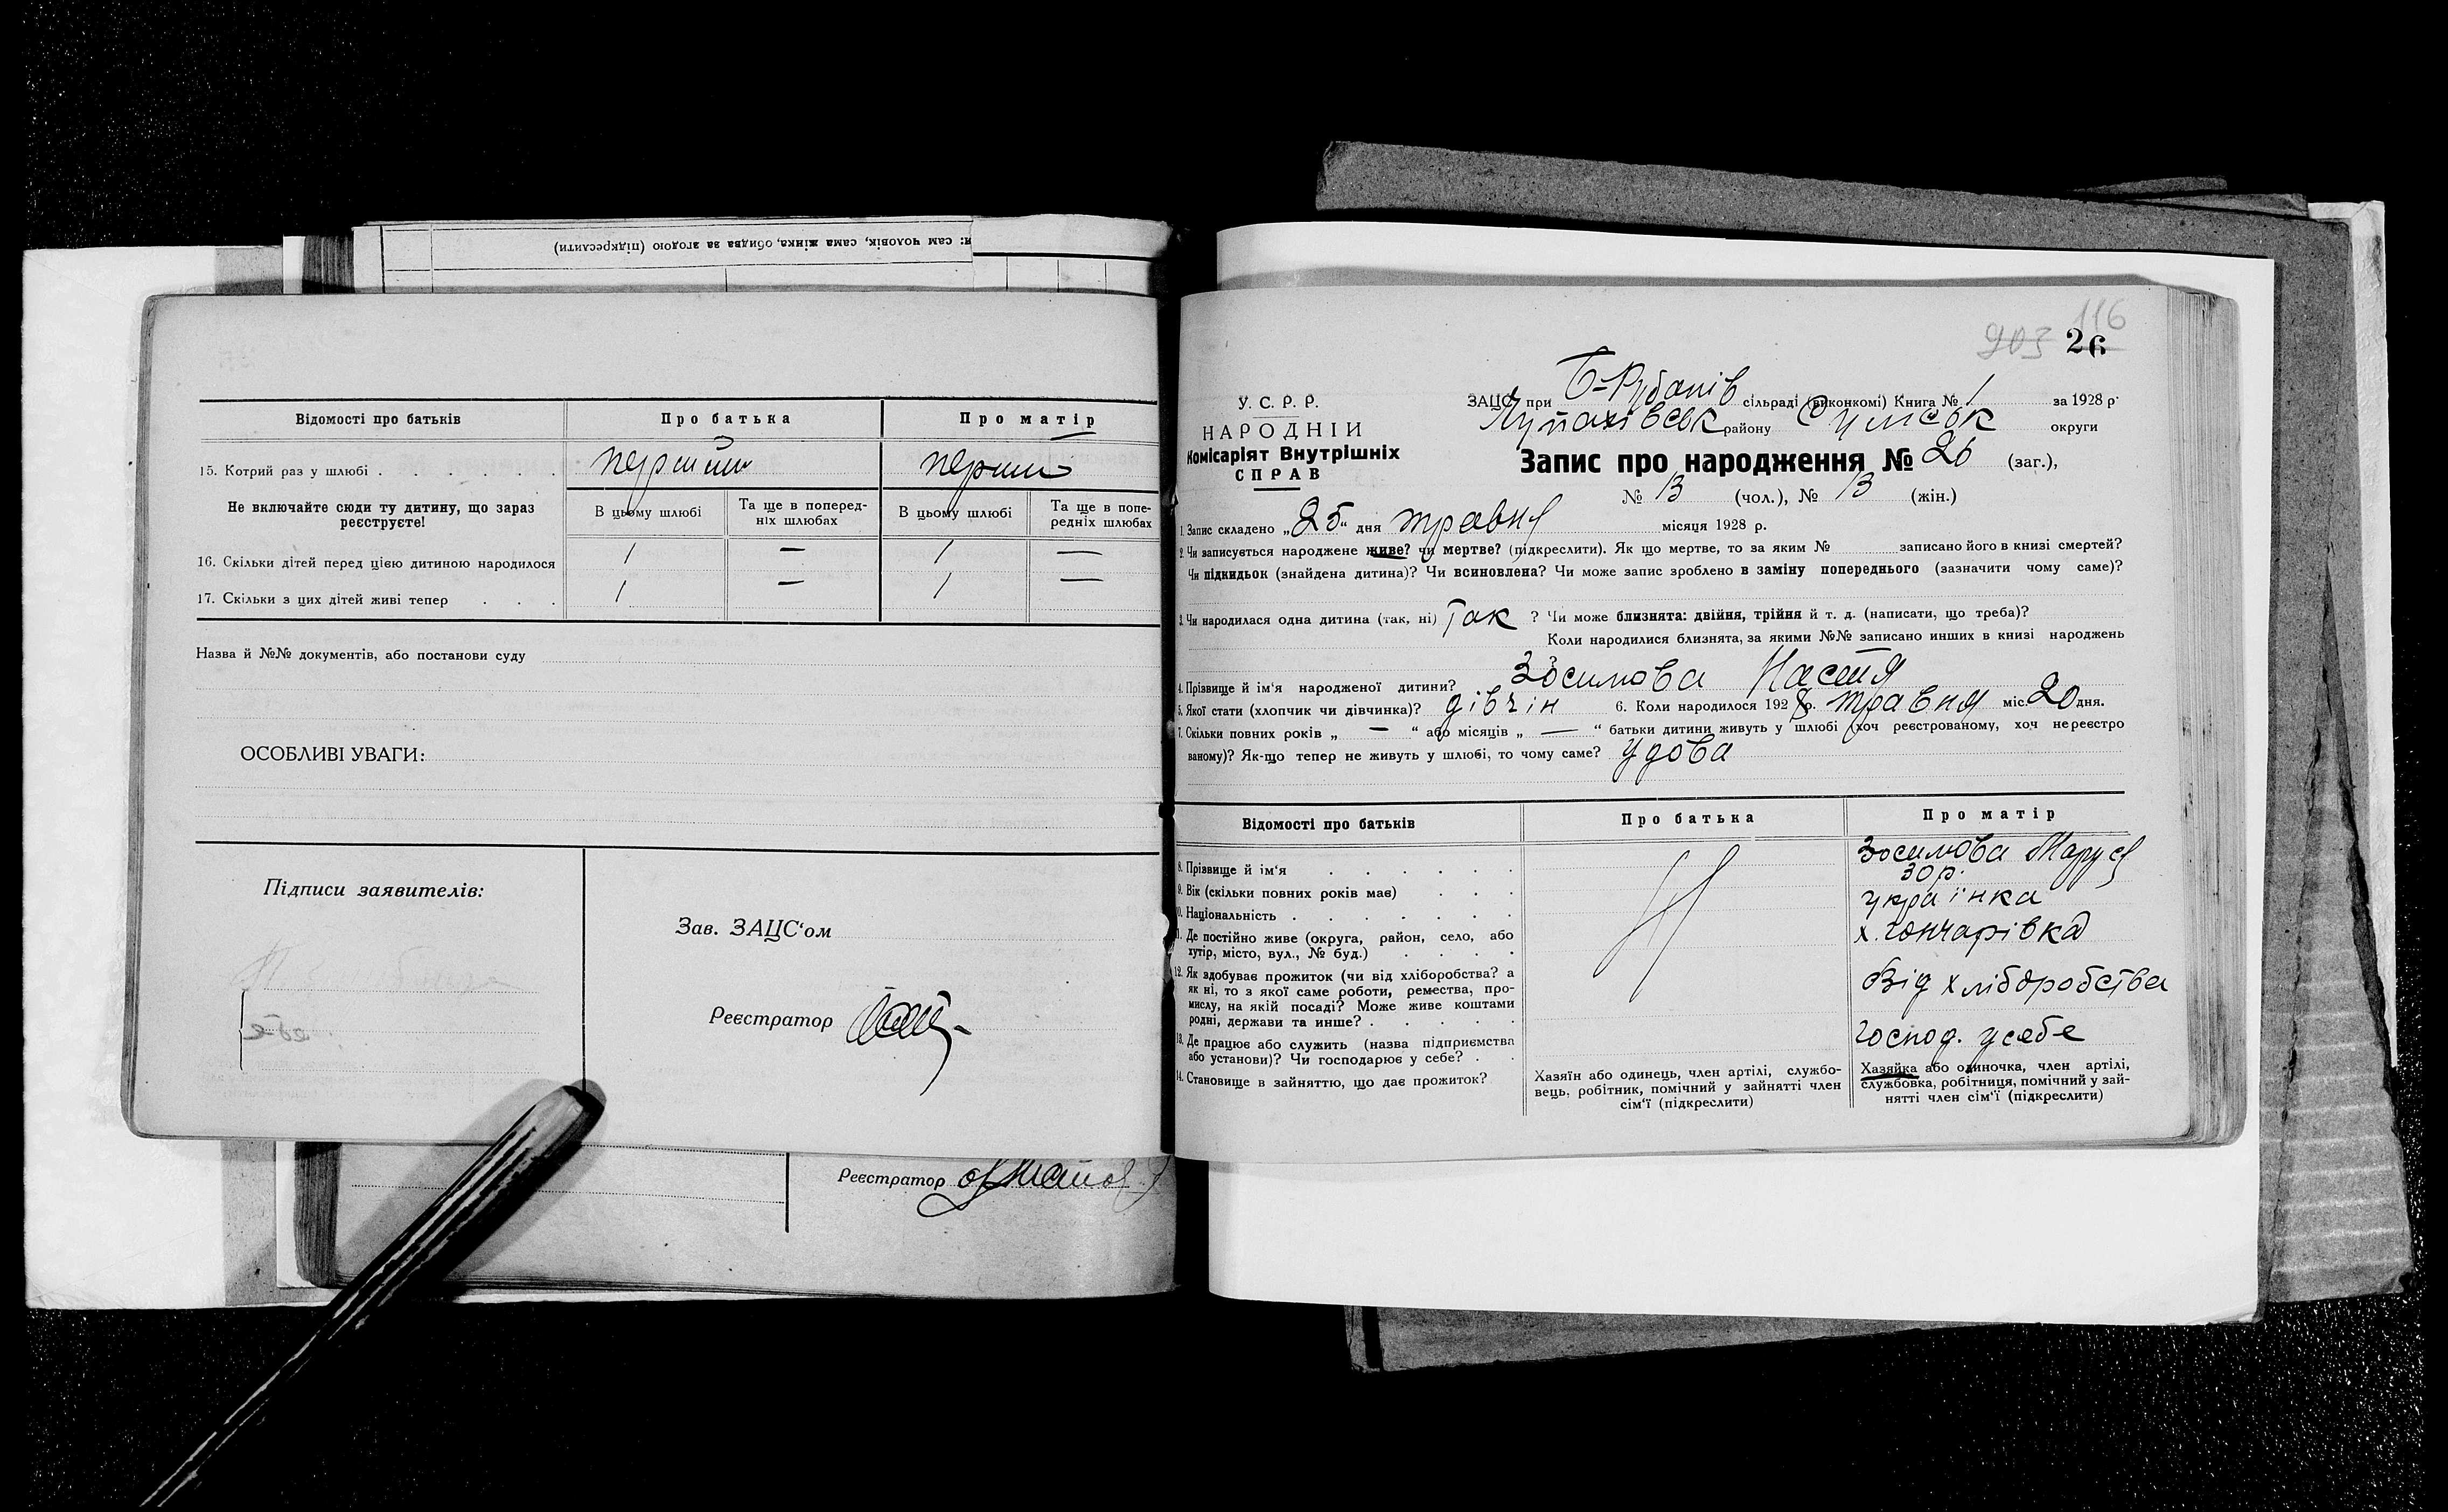 и: сам чоловік, сама жінка, обидва за згодою (підкреслити)
Відомості про батьків Про батька Про матір
15. Котрий раз у шлюбі . . . . . . перший перший
Не включайте сюди ту дитину, що зараз реєструєте!
В цьому шлюбі Та ще в поперед-ніх шлюбах В цьому шлюбі Та ще в попе-редніх шлюбах
16. Скільки дітей перед цією дитиною народилося 1 — 1 —
17. Скільки з цих дітей живі тепер . . . 1 — 1 —
Назва й №№ документів, або постанови суду
ОСОБЛИВІ УВАГИ:
Підписи заявителів:
Зав. ЗАЦС‘ом
Реєстратор
Реєстратор
903 116
26
У. С. Р. Р.
НАРОДНІЙ
Комісаріят Внутрішніх
СПРАВ
ЗАЦС при Б-Рубанів сільраді (виконкомі) Книга № 1 за 1928 р.
району Сумськ округи
Запис про народження № 26 (заг.),
№ 13 (чол.), № 13 (жін.)
1. Запис складено „25“ дня травня місяця 1928 р.
2. Чи записується народжене живе? чи мертве? (підкреслити). Як що мертве, то за яким № записано його в книзі смертей?
Чи підкидьок (знайдена дитина)? Чи всиновлена? Чи може запис зроблено в заміну попереднього (зазначити чому саме)?
3. Чи народилася одна дитина (так, ні) Так ? Чи може близнята: двійня, трійня й т. д. (написати, що треба)?
Коли народилися близнята, за якими №№ записано инших в книзі народжень
4. Прізвище й ім‘я народженої дитини? Зосимова Настя
5. Якої стати (хлопчик чи дівчинка)? дівчін 6. Коли народилося 1928 р. травня міс. 20 дня.
7. Скільки повних років „ — “ або місяців „ — “ батьки дитини живуть у шлюбі (хоч реєстрованому, хоч нереєстро
ваному)? Як-що тепер не живуть у шлюбі, то чому саме? удова
Відомості про батьків Про батька Про матір
8. Прізвище й ім‘я . . . . . . Зосимова Маруся
9. Вік (скільки повних років має) . . . 30 р.
10. Національність . . . . . . . українка
11. Де постійно живе (округа, район, село, або
хутір, місто, вул., № буд.) . . . . х. Гончарівка
12. Як здобуває прожиток (чи від хліборобства? а
як ні, то з якої саме роботи, ремества, про-
мислу, на якій посаді? Може живе коштами
родні, держави та инше? . . . . . Від хліборобства
13. Де працює або служить (назва підприємства
або установи)? Чи господарює у себе? . . господ. у себе
14. Становище в зайняттю, що дає прожиток?
Хазяїн або одинець, член артілі, службо-
вець, робітник, помічний у зайнятті член
сім‘ї (підкреслити)
Хазяйка або одиночка, член артілі,
службовка, робітниця, помічний у зай-
нятті член сім‘ї (підкреслити)